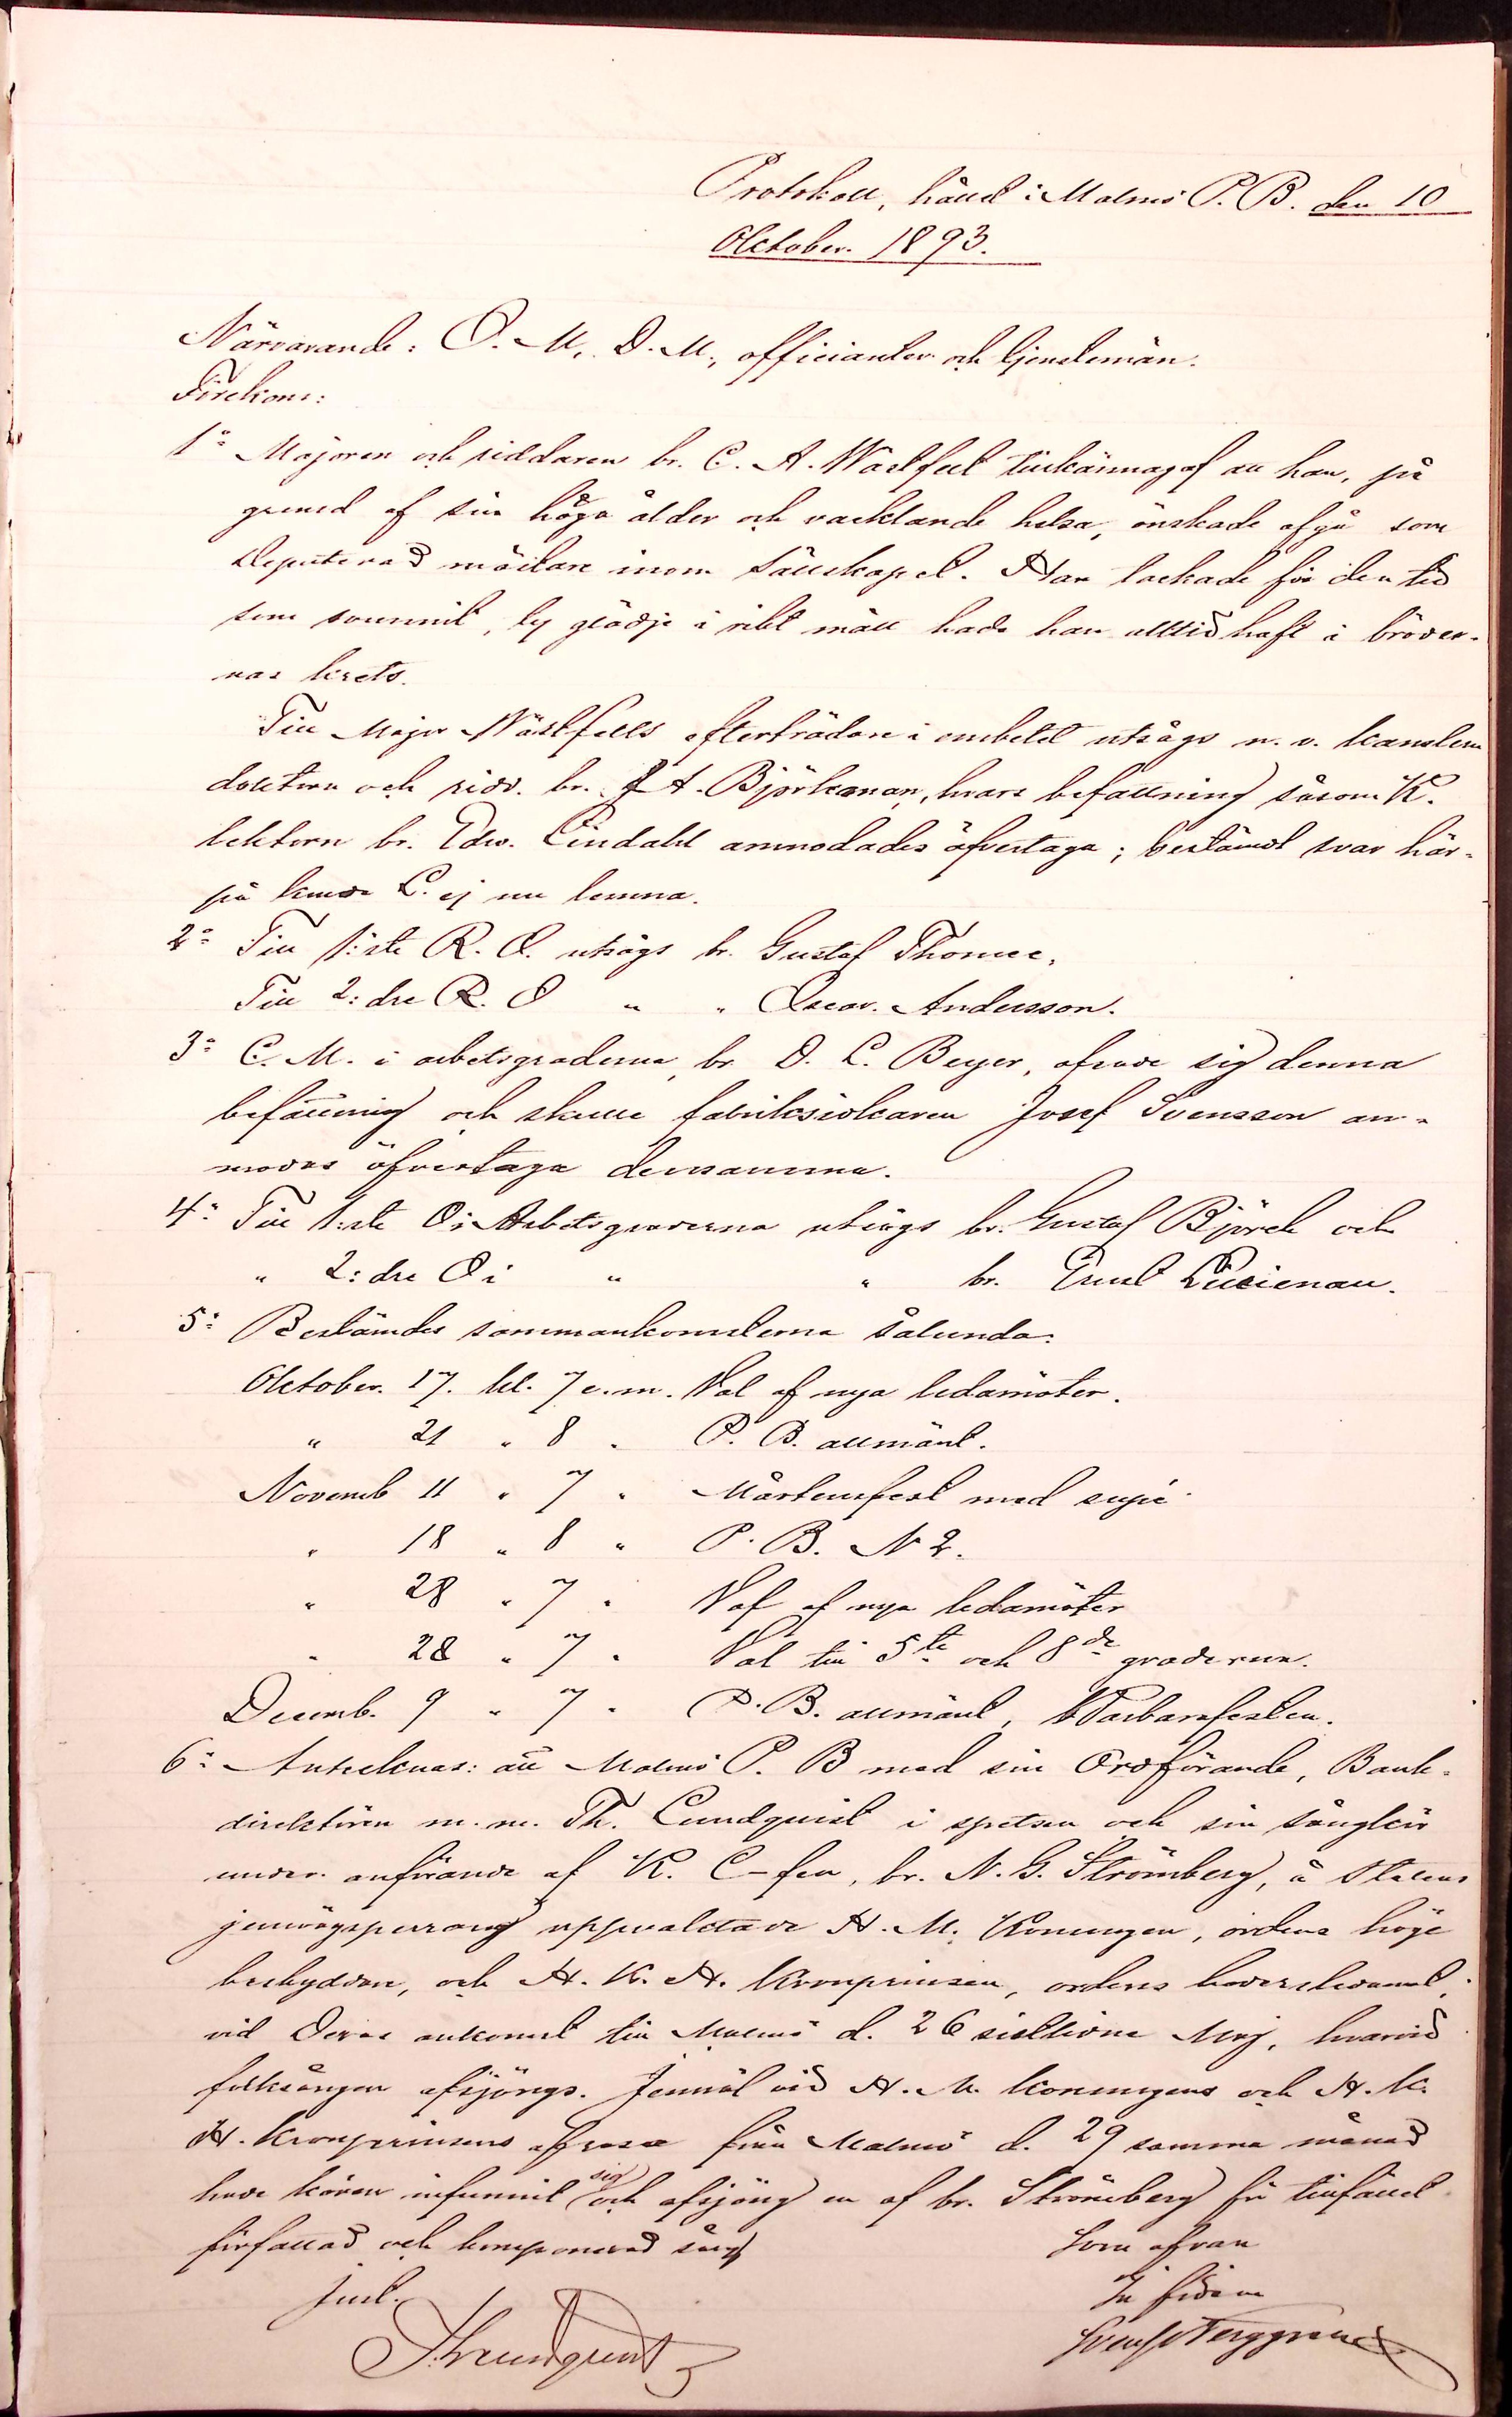 Protokoll, hållet i Malmö P. B. den 10
Oktober. 1893.
Närvarande: O. M., D. M., officianter och tjenstemän.
Förekom:
1:o Majoren och riddaren br. C. A. Wästfelt tillkännagaf att han, på
grund af sin höga ålder och vacklande helsa, önskade afgå som
deputerad mästare inom Sällskapet. Han tackade för den tid
som svunnit, ty glädje i rikt mått hade han alltid haft i bröder-
nas krets.
Till Major Wästfelts efterträdare i embetet utsågs n. v. kanslern
doktorn och ridd. br. J A. Björkman, hvars befattning såsom K.
lektorn br. Edw. Lindahl anmodades öfvertaga; bestämdt svar här-
på kunde L. ej nu lemna.
2:o Till 1:ste R. O. utsågs br. Gustaf Thomée,
Till 2:dre R. O " " Oscar Andersson.
3:o C. M. i arbetsgraderna, br. O. L. Beyer, afsade sig denna
befattning och skulle fabriksidkaren Josef Svensson an-
modas öfvertaga densamma.
4:o Till 1:ste O i Arbetsgraderna utsågs br. Gustaf Björck och
" 2:dre O i " " br. Ernst
5:o Bestämdes sammankomsterna sålunda:
Oktober. 17. kl. 7 e.m. Val af nya ledamöter.
" 21 " 8 " P. B. allmänt.
Novemb 11 " 7 " Mårtensfest med supé
" 18 " 8 " P. B. N 2.
" 28 " 7 " Val af nya ledamöter
" 28 " 7 " Val till 5te och 8de graderna.
Decemb. 9 " 7 " P. B. allmänt, Barbarafesten.
6:o Antecknas: att Malmö P. B med sin Ordförande, Bank-
direktören m. m. Th. Lundquist i spetsen och sin sångkör
under anförande af K. C-fen, br. N. G. Strömberg, å Statens
jernvägsperrong uppvaktade H. M. Konungen, ordens höge
beskyddare, och H. K. H. Kronprinsen, ordens hedersledamot,
vid Deras ankomst till Malmö d. 26 sistlidne Maj, hvarvid
folksången afsjöngs. Jemväl vid H. M. Konungens och H. K.
H. Kronprinsens afresa från Malmö d. 29 samma månad
hade kören infunnit sig och afsjöng en af br. Strömberg för tillfället
författad och komponerad sång
Som ofvan
Just.
In fidem
Th Lundquist